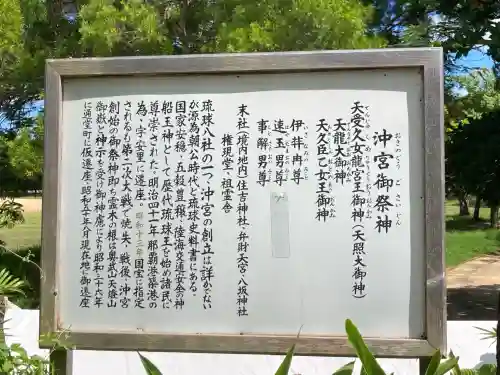 沖宮御祭神
おきのぐう ごさいじん
天受久女龍宮王御神(天照大御神)
天龍大御神
天久臣乙女王御神
伊弉冉尊
速玉男尊
事解男尊
末社(境内地内)住吉神社・弁財天宮・八坂神社
権現堂・祖霊舎
琉球八社の一つ、沖宮の創立は詳かでない
が源為朝公時代と琉球史料書にある。
国家安穏・五穀豊穣・陸海交通安全の神
船玉神として歴代琉球王を始め諸民に
尊崇された。明治四十一年那覇港築港の
為、字安里に遷座。昭和十三年国宝に指定
されるも第二次大戦で焼失。戦後、沖宮
創始の御祭神即ち霊木の根所、奥武山天燈山
御嶽と神示を受け御神慮により昭和三十六年
に通堂町に仮遷座。昭和五十年八月現在地に御遷座